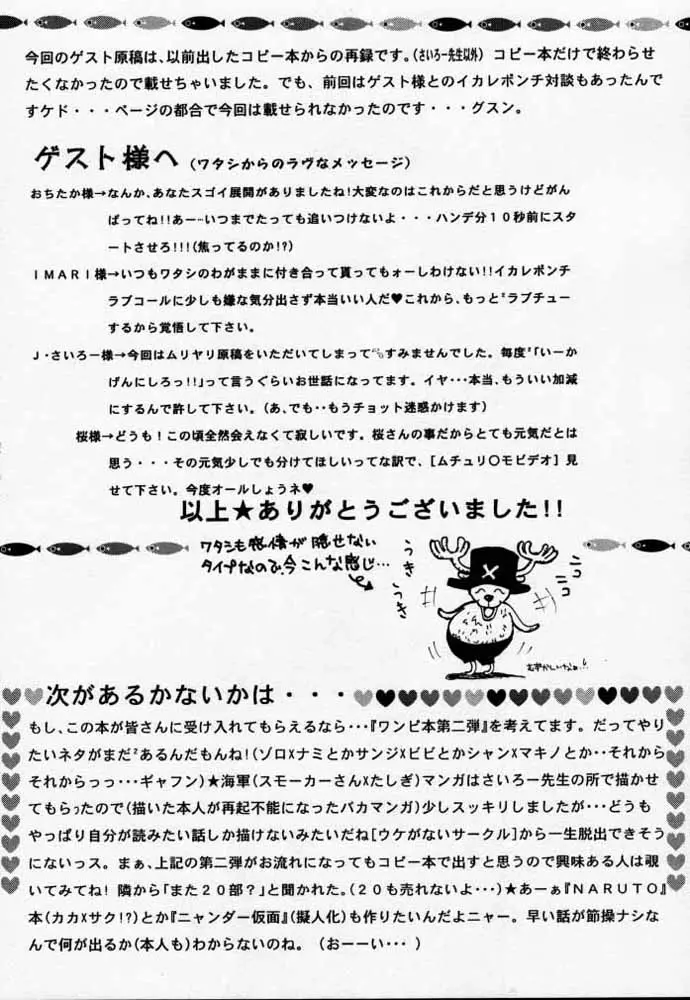 今回のゲスト原稿は、以前出したコピー本からの再録です。(さいろー先生以外) コピー本だけで終わらせ
たくなかったので載せちゃいました。でも、前回はゲスト様とのイカレポンチ対談もあったんで
すケド・・・ページの都合で今回は載せられなかったのです・・・グスン。
ゲスト様へ (ワタシからのラヴなメッセージ)
おちたか様→なんか、あなたスゴイ展開がありましたね!大変なのはこれからだと思うけどがん
ばってね!!あー…いつまでたっても追いつけないよ・・・ハンデ分10秒前にスタ
ートさせろ!!!(焦ってるのか!?)
IMARI様→いつもワタシのわがままに付き合って貰ってもォーしわけない!!イカレポンチ
ラブコールに少しも嫌な気分出さず本当いい人だ♥これから、もっと²ラブチュー
するから覚悟して下さい。
J・さいろー様→今回はムリヤリ原稿をいただいてしまって すみませんでした。毎度²「いーか
げんにしろっ!!」って言うぐらいお世話になってます。イヤ・・・本当、もういい加減
にするんで許して下さい。(あ、でも・・もうチョット迷惑かけます)
桜様→どうも!この頃全然会えなくて寂しいです。桜さんの事だからとても元気だとは
思う・・・その元気少しでも分けてほしいってな訳で、[ムチュリ〇モビデオ]見
せて下さい。今度オールしょうネ♥
以上★ありがとうございました!!
ワタシも感情が隠せない
タイプなので、今こんな感じ…
うき
うき
ニコ
ニコ
むずかしいなぁ…!
次があるかないかは・・・
もし、この本が皆さんに受け入れてもらえるなら・・・『ワンピ本第二弾』を考えてます。だってやり
たいネタがまだ²あるんだもんね!(ゾロ×ナミとかサンジ×ビビとかシャン×マキノとか・・それから
それからっっ・・・ギャフン)★海軍(スモーカーさん×たしぎ)マンガはさいろー先生の所で描かせ
てもらったので(描いた本人が再起不能になったバカマンガ)少しスッキリしましたが・・・どうも
やっぱり自分が読みたい話しか描けないみたいだね[ウケがないサークル]から一生脱出できそう
にないっス。まぁ、上記の第二弾がお流れになってもコピー本で出すと思うので興味ある人は覗
いてみてね!隣から「また20部?」と聞かれた。(20も売れないよ・・・)★あーぁ『NARUTO』
本(カカ×サク!?)とか『ニャンダー仮面』(擬人化)も作りたいんだよニャー。早い話が節操ナシな
んで何が出るか(本人も)わからないのね。 (おーーい・・・ )